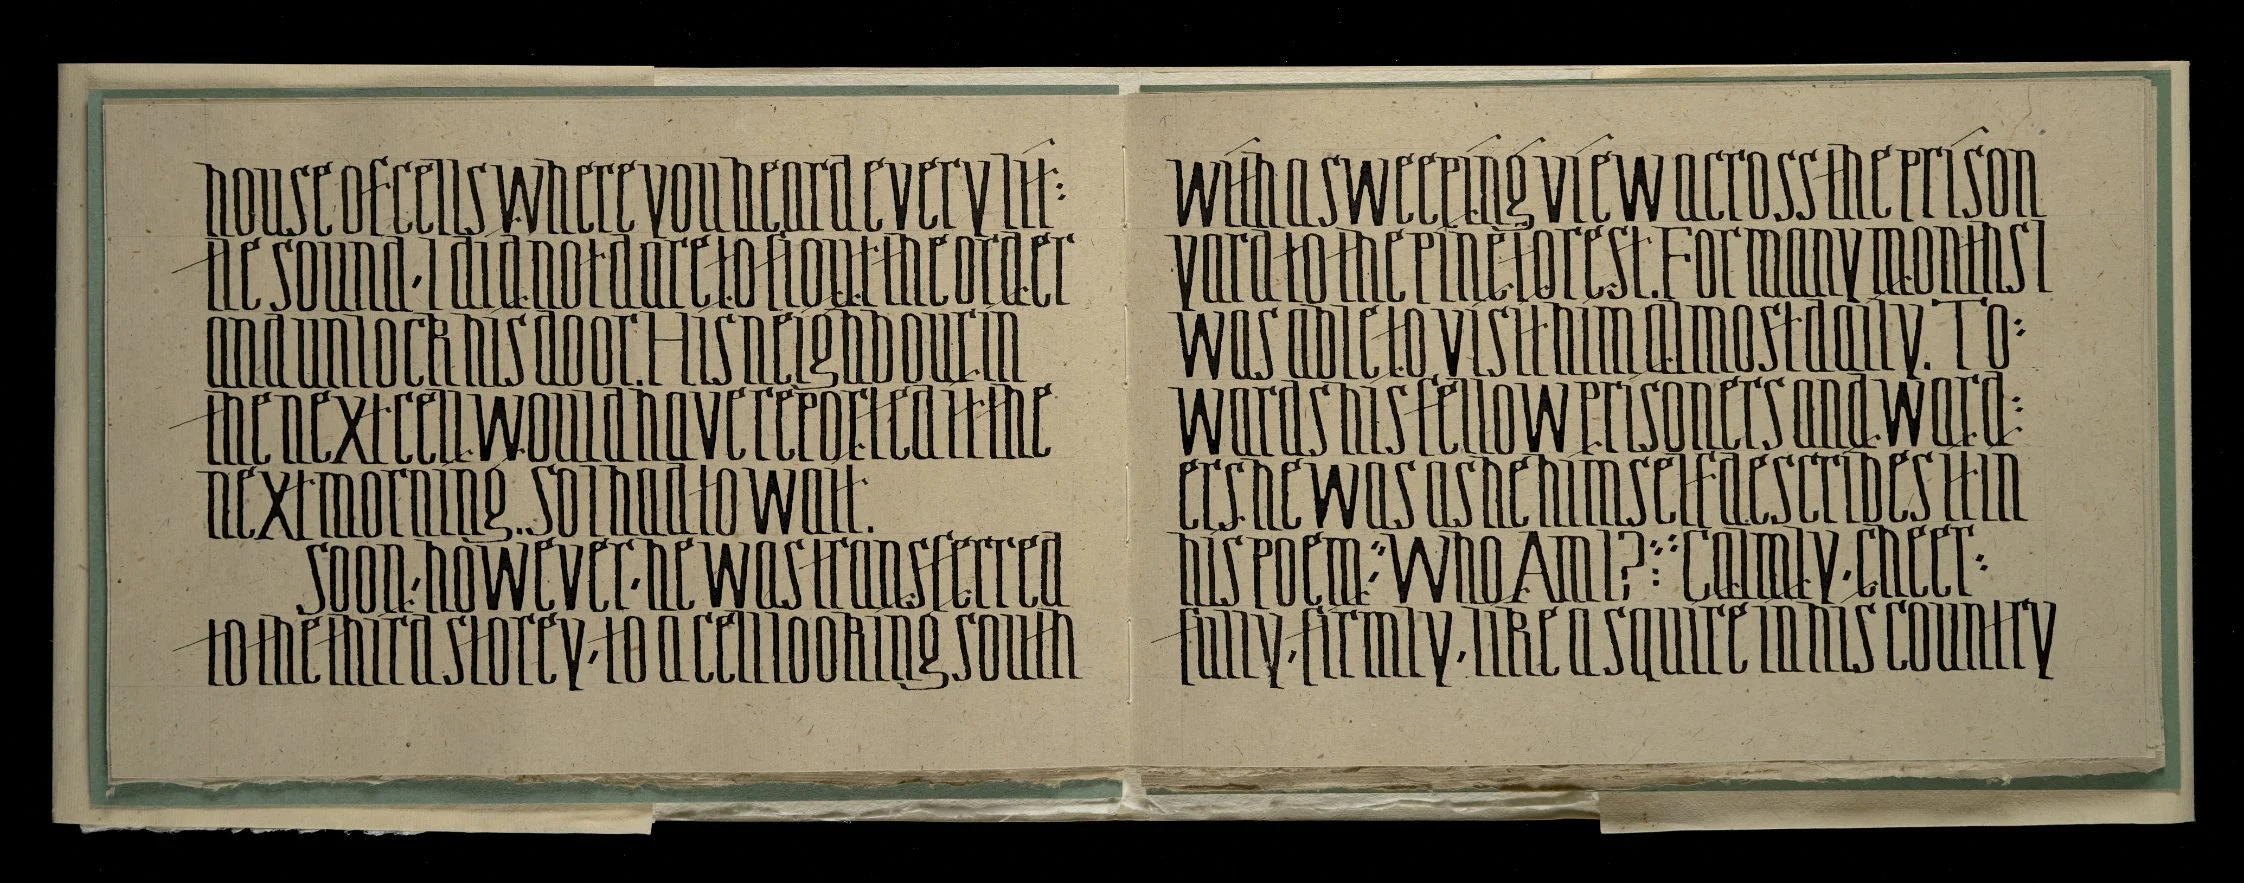 house of cells where you heard every lit:
tle sound, I did not dare to flout the order
and unlock his door. His neighbour in
the next cell would have reported it the
next morning. So I had to wait.
Soon, however, he was transferred
to the third storey, to a cell looking south
with a sweeping view across the prison
yard to the pine forest. For many months I
was able to visit him almost daily. To:
wards his fellow prisoners and ward:
ers he was as he himself describes it in
his poem: "Who Am I?": "Calmly, cheer:
fully, firmly, like a squire in his country